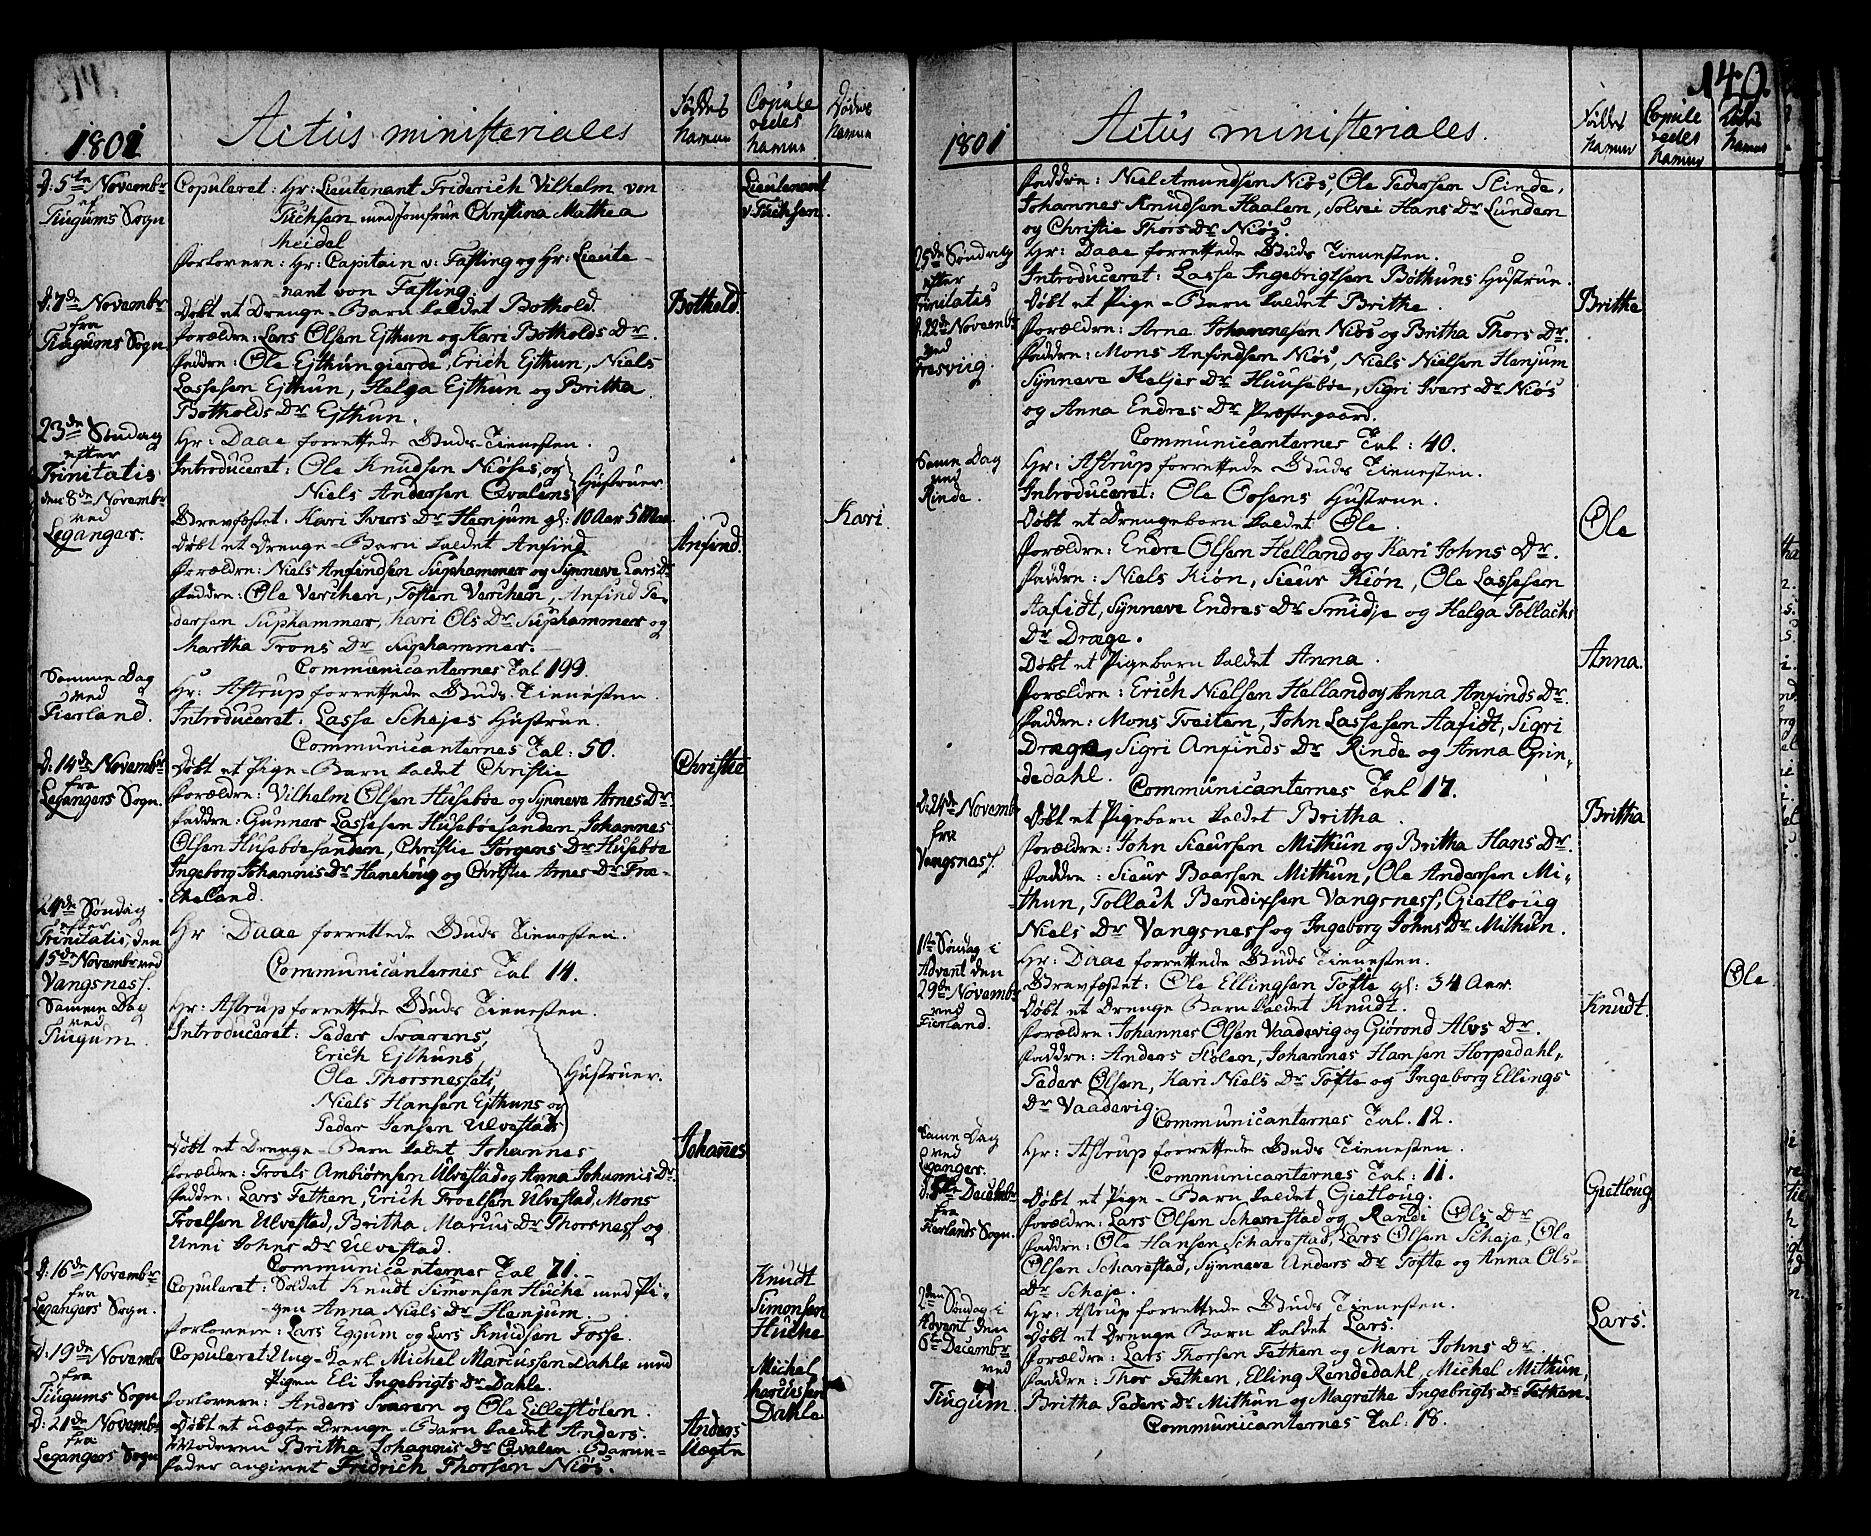 1801
Actus ministeriales
Føddes Navne
Copule
redes
Navne
Dødes
Navne
D: 5te Novembr
af
Tiugums Sogn
Copuleret: Hr: Lieutenant Friderich Vilhelm von
Tuchsen med Jomfrue Christina Mathea
Meidel
Lieutenant
v. Tuchsen.
Forlovere: Hr: Capitain v: Fasting og Hr: Lieute-
nant von Fasting.
D: 7de Novembr
fra
Tiugums Sogn.
Døbt et Drenge-Barn kaldet Bothold.
Bothold.
Forældre: Lars Olsen Ejthun og Kari Botholds Dr.
Faddre: Ole Ejthungierde, Erich Ejthun, Niels
Lassesen Ejthun, Helga Ejthun og Britha
Botholds Dr Ejthun.
23de Søndag
efter
Trinitatis
den 8de Novembr
ved
Leganger.
Hr: Daae forrettede Guds-Tienesten.
Introduceret: Ole Knudsen Niøses, og
Niels Andersen Qvalens
Hustruer
Brevfæstet: Kari Ivers Dr Henjum gl: 10 Aar 5 Maan
Kari.
Døbt et Drenge-Barn kaldet Anfind
Anfind.
Forældre: Niels Anfindsen Suphammer og Synneve Lars Dr
Faddre: Ole Verchen, Tosten Verchen, Anfind Pe-
dersen Suphammer, Kari Ols Dr Suphammer og
Martha Trons Dr Suphammer.
Communicanternes Tal 199.
Samme Dag
ved
Fierland.
Hr: Astrup forrettede Guds-Tienesten.
Introduceret: Lasse Schejes Hustrue.
Communicanternes Tal: 50.
D: 14de Novembr
fra
Legangers Sogn.
Døbt et Pige-Barn kaldet Christie
Christie
Forældre: Vilhelm Olsen Husebøe og Synneve Arnes Dr.
Faddre: Gunner Lassesen Husebøesanden, Johannes
Olsen Husebøesanden, Christie Jørgens Dr Husebøe
Ingeborg Johannis Dr Hanehoug og Christie Arnes Dr Fræ-
cheland.
24de Søndag
efter
Trinitatis, den
15de Novembr ved
Vangsness.
Hr Daae forrettede Guds Tienesten.
Communicanternes Tal 14.
Samme Dag
ved
Tiugum.
Hr: Astrup forrettede Guds Tienesten.
Introduceret: Peder Sværens,
Erich Ejthuns
Ole Thorsnessets,
Niels Hansen Ejthuns og
Peder Jensen Ulvestads
Hustruer.
Døbt et Drenge-Barn kaldet Johannes
Johannes
Forældre: Troels Ambiørnsen Ulvestad og Anna Johannis Dr.
Faddre: Lars Fethen, Erich Troelsen Ulvestad, Mons
Troelsen Ulvestad, Britha Marius Dr Thorsness og
Unni Johns Dr Ulvestad.
Communicanternes Tal 71.
D: 16de Novembr
fra
Legangers Sogn.
Copuleret: Soldat Knudt Simonsen Huche med Pi-
gen Anna Niels Dr Henjum
Forlovere: Lars Eggum og Lars Knudsen Fosse.
Knudt
Simonsen
Huche
D: 19de Novembr
fra
Tiugums Sogn
Copuleret: Ung-Karl Michel Mariussen Dahle med
Pigen Eli Ingebrigts Dr Dahle.
Forlovere: Anders Sværen og Ole Eillestølen.
Michel
Mariussen
Dahle
D: 21de Novembr
fra
Legangers Sogn
Døbt et uægte Drenge-Barn kaldet Anders.
Moderen Britha Johannis Dr Qvalen. Barne-
fader angivet Fridrich Thorsen Niøs.
Anders
Uægte
140.
1801
Actus ministeriales.
Føddes
Navne
Copule
redes
Navne
Dødes
Navne
Faddre: Niel Amundsen Niøs, Ole Pedersen Slinde,
Johannes Knudsen Haalen, Solvei Hans Dr Lunden
og Christie Thors Dr Niøs.
25de Søndag
efter
Trinitatis
d: 22de Novembr
ved
Fresviig.
Hr: Daae forrettede Guds Tienesten.
Introduceret: Lasse Ingebrigtsen Bøthuns Hustrue.
Døbt et Pige-Barn kaldet Brithe.
Brithe
Forældre: Arne Johannesen Niøs og Britha Thors Dr.
Faddre: Mons Anfindsen Niøs, Niels Nielsen Henjum
Synneve Heljes Dr Huusebøe, Sigri Ivers Dr Niøs
og Anna Endres Dr Præstegaard.
Communicanternes Tal: 40.
Samme Dag
ved
Rinde.
Hr: Astrup forrettede Guds Tienesten.
Introduceret: Ole Oosens Hustrue.
Døbt et Drengebarn kaldet Ole.
Ole
Forældre: Endre Olsen Helland og Kari Johns Dr.
Faddre: Niels Kiøn, Sieur Kiøn, Ole Lassesen
Aafidt, Synneve Endres Dr Smidje og Helga Tollachs
Dr Drege.
Døbt et Pigebarn kaldet Anna.
Anna.
Forældre: Erich Nielsen Helland og Anna Anfinds Dr.
Faddre: Mons Tveiten, John Lassesen Aafidt, Sigri
Drege, Sigri Anfinds Dr Rinde og Anna Grin-
dedahl.
Communicanternes Tal 17.
D: 24de Novembr
fra
Vangsness.
Døbt et Pigebarn kaldet Britha.
Britha
Forældre: John Sieursen Mithun og Britha Hans Dr.
Faddre: Sieur Baarsen Mithun, Ole Andersen Mi-
thun, Tollach Bendixsen Vangsness, Gietloug
Niels Dr Vangsness og Ingeborg Johns Dr Mithun.
1te Søndag i
Advent den
29de Novembr
ved
Fierland.
Hr: Daae forrettede Guds Tienesten.
Brevfæstet: Ole Ellingsen Tofte gl: 34 Aar.
Ole
Døbt et Drenge Barn kaldet Knudt.
Knudt.
Forældre: Johannes Olsen Vaadevig og Giørond Alvs Dr.
Faddre: Anders Hølen, Johannes Hansen Horpedahl,
Peder Olsen, Kari Niels Dr Tofte og Ingeborg Ellings
Dr Vaadevig.
Communicanternes Tal. 12.
Samme Dag
ved
Leganger.
Hr: Astrup forrettede Guds Tienesten.
Communicanternes Tal: 11.
Decembr
fra
Fierlands Sogn.
Døbt et Pige-Barn kaldet Gietloug.
Gietloug
Forældre: Lars Olsen Scharestad og Randi Ols Dr
Faddre: Ole Hansen Scharestad, Lars Olsen Scheje, Ole
Olsen Scharestad, Synneve Anders Dr Tofte og Anna Ols-
Dr Scheje.
2den
Søndag i
Advent den
6te Decembr
ved
Tiugum.
Hr: Astrup forrettede Guds Tienesten.
Døbt et Drenge Barn kaldet Lars.
Lars.
Forældre: Lars Thorsen Fethen og Mari Johns Dr.
Faddre: Thor Fethen, Elling Rendedahl, Michel Mithun,
Britha Peders Dr Mithun og Magrethe Ingebrigts Dr Fethen.
Communicanternes Tal: 18.